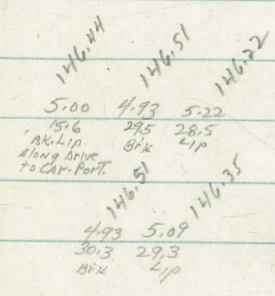 146.44 146.51 146.22
5.00 4.93 5.22
15.6 29.5 28.5
Bk. Lip Brk Lip
Along Drive
to Car-Port.
146.51 146.35
4.93 5.09
30.3 29.3
Brk Lip